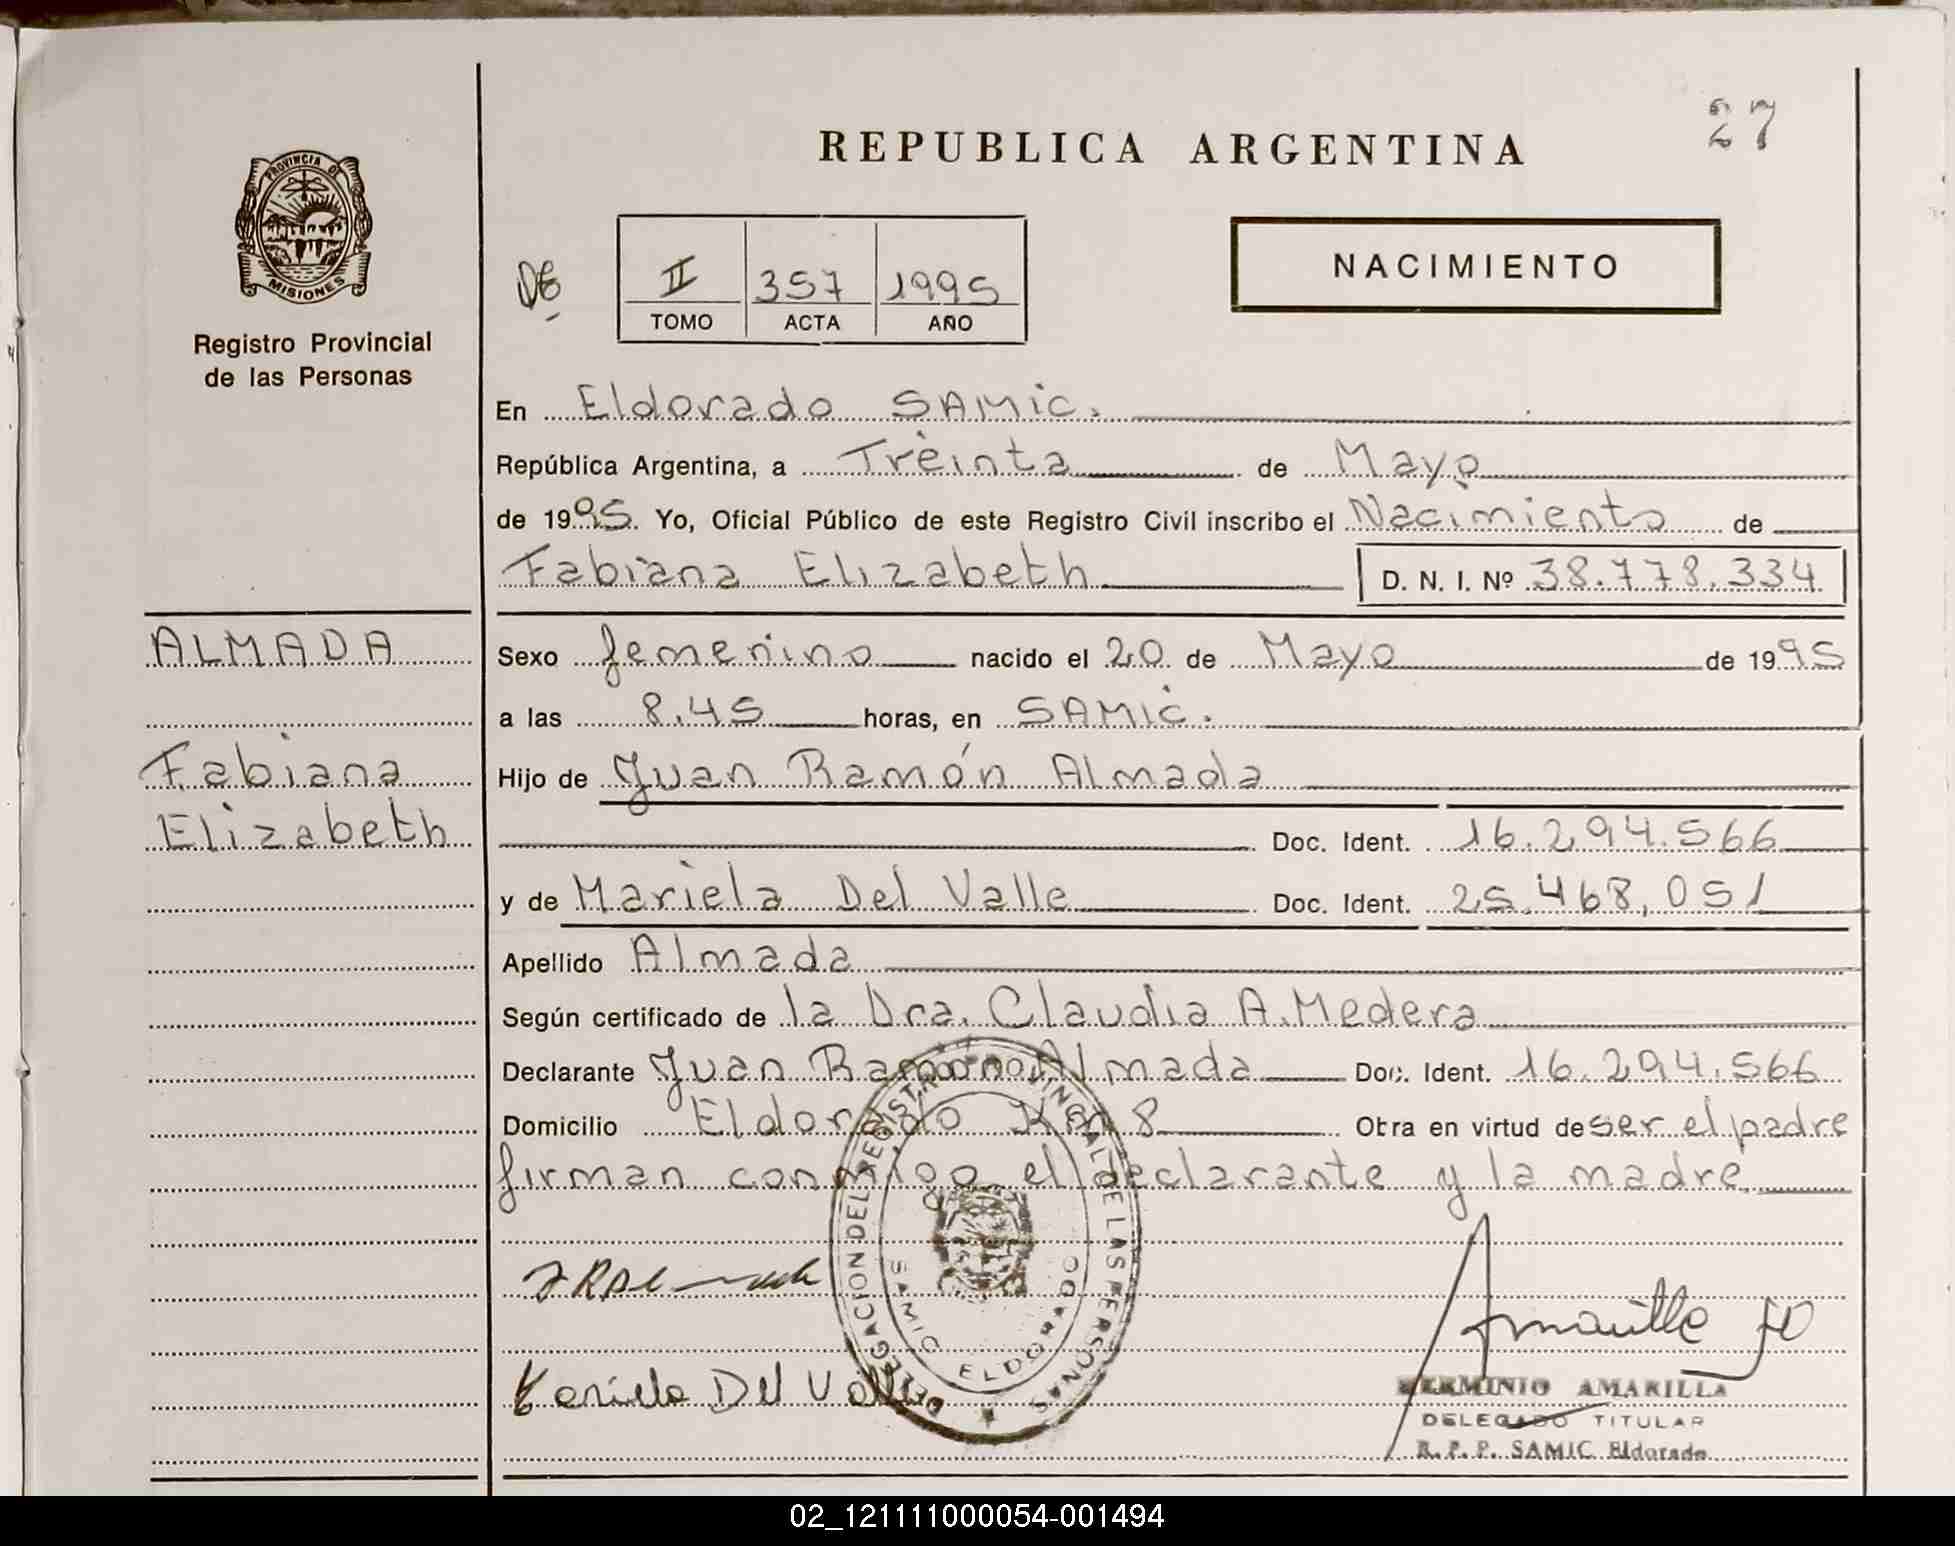 27
REPUBLICA ARGENTINA
PROVINCIA DE
MISIONES
Registro Provincial
de las Personas
II 357 1995
TOMO ACTA AÑO
NACIMIENTO
En Eldorado SAMic.
República Argentina, a Treinta de Mayo
de 1995. Yo, Oficial Público de este Registro Civil inscribo el Nacimiento de
Fabiana Elizabeth D. N. I. Nº 38.778.334
ALMADA
Fabiana
Elizabeth
Sexo femenino nacido el 20 de Mayo de 1995
a las 8.45 horas, en SAMIC.
Hijo de Juan Ramón Almada
Doc. Ident. 16.294.566
y de Mariela Del Valle Doc. Ident. 25.468.051
Apellido Almada
Según certificado de la Dra. Claudia A. Medera
Declarante Juan Ramón Almada Doc. Ident. 16.294.566
Domicilio Eldorado Km 8 Obra en virtud de ser el padre
firman conmigo el declarante y la madre
DELEGACION DEL REGISTRO PROVINCIAL DE LAS PERSONAS
SAMIC ELDORADO
Mariela Del Valle
HERMINIO AMARILLA
DELEGADO TITULAR
R. P. P. SAMIC Eldorado
02_121111000054-001494